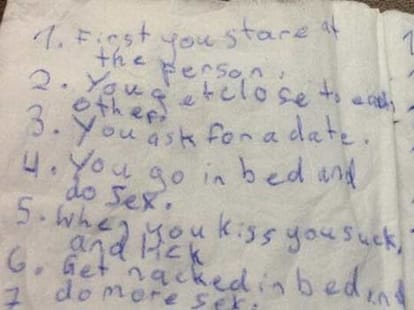 1. First you stare at
the person.
2. You get close to each
other.
3. You ask for a date.
4. You go in bed and
do sex.
5. When you kiss you suck,
and lick
6. Get nacked in bed and
7 do more sex.